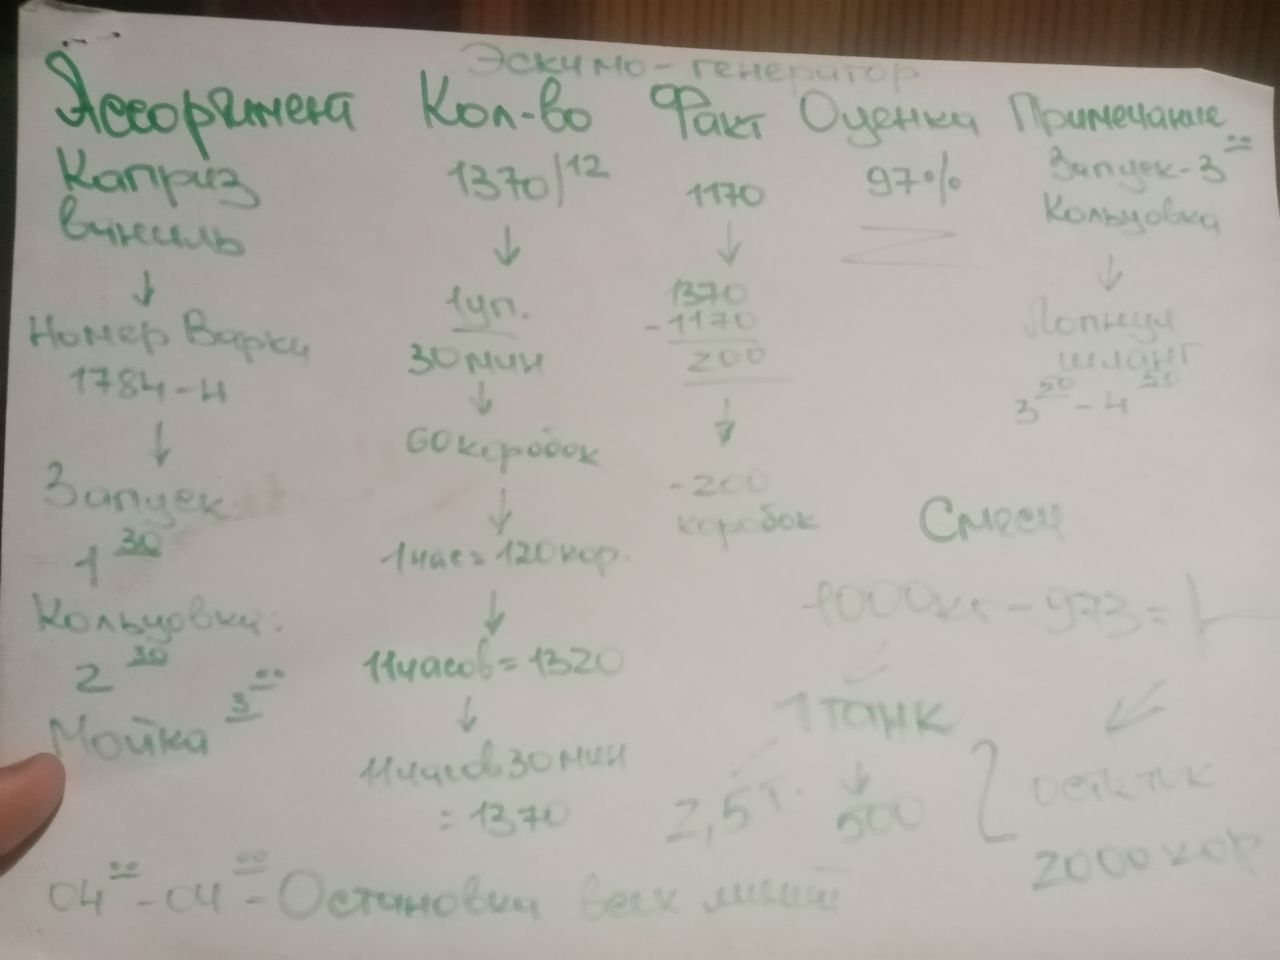 Эскимо-генератор
Ассортимент Кол-во Факт Оценка Примечание
Каприз
ваниль
↓
Номер Варки
1784-Н
↓
Запуск
1 30
Кольцовка:
2 30
Мойка 3 00
1370/12
↓
1уп.
30мин
↓
60коробок
↓
1час=120кор.
↓
11часов=1320
↓
11часов30мин
=1370
1170
↓
1370
-1170
200
↓
-200
коробок
97%
Запуск-3 00
Кольцовка
↓
Лопнул
шланг
3 50 - 4 50
Смеси
1000кг-973=
1 танк
2,5т. 500
остаток
2000кор
04 00 - 04 00 - Остановки всех линий